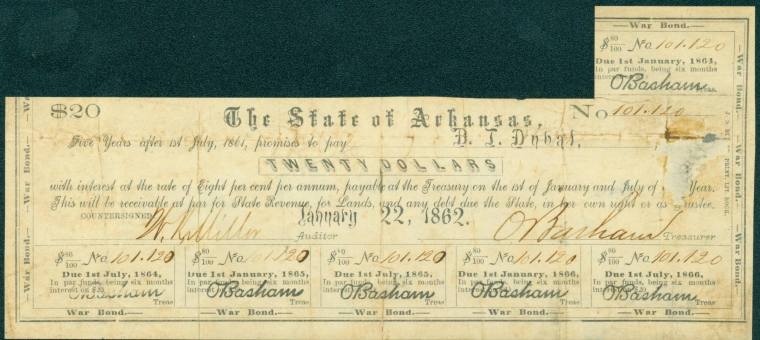 War Bond.
$80/100 No. 101.120
Due 1st January, 1864,
In par funds, being six months
interest
OBasham
Treas
$20 The State of Arkansas, No 101.120
Five Years after 1st July, 1861, promises to pay
TWENTY DOLLARS
with interest at the rate of Eight per cent per annum, payable at the Treasury on the 1st of January and July of Year.
This will be receivable at par for State Revenue, for Lands, and any debt due the State, in her own right or as
COUNTERSIGNED January 22, 1862.
W. R. Miller Auditor OBasham Treasurer
$80/100 No. 101.120
Due 1st July, 1864,
In par funds, being six months
interest on $20.
OBasham
Treas
$80/100 No. 101.120
Due 1st January, 1865,
In par funds, being six months
interest
OBasham
$80/100 No. 101.120
Due 1st July, 1865,
In par funds, being six months
interest
OBasham
$80/100 No. 101.120
Due 1st January, 1866,
In par funds, being six months
interest
OBasham
Treas
$80/100 No. 101.120
Due 1st July, 1866,
In par funds, being six months
interest on $20.
OBasham
Treas
War Bond. War Bond. War Bond. War Bond.
War Bond.
War Bond.
War Bond.
War Bond.